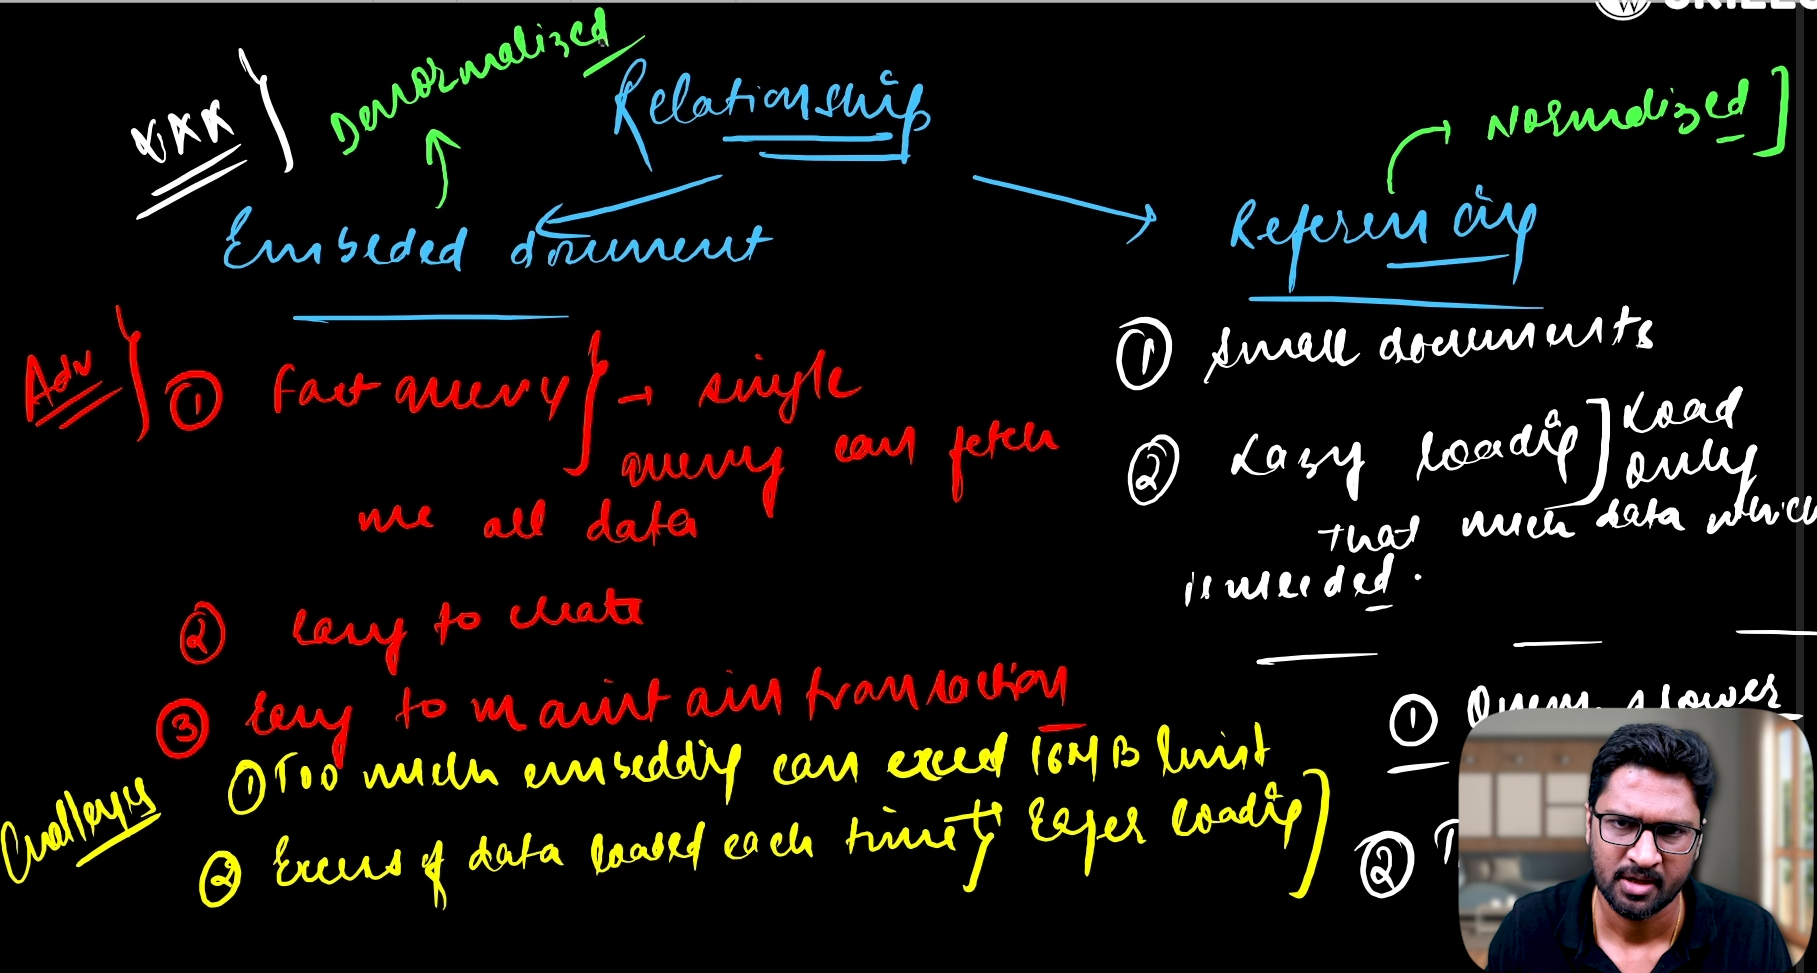 Denormalized
Relationship
Normalized]
Embeded document
Referencing
Adv
① Fast query } → single
query can fetch
me all data
② easy to create
③ Easy to maintain transaction
Challenges
① Too much embedding can exceed 16MB limit
② Excess of data loaded each time } Eager loading]
① Small documents
② Lazy loading] Load
only
that much data which
is needed.
① Query slower
②